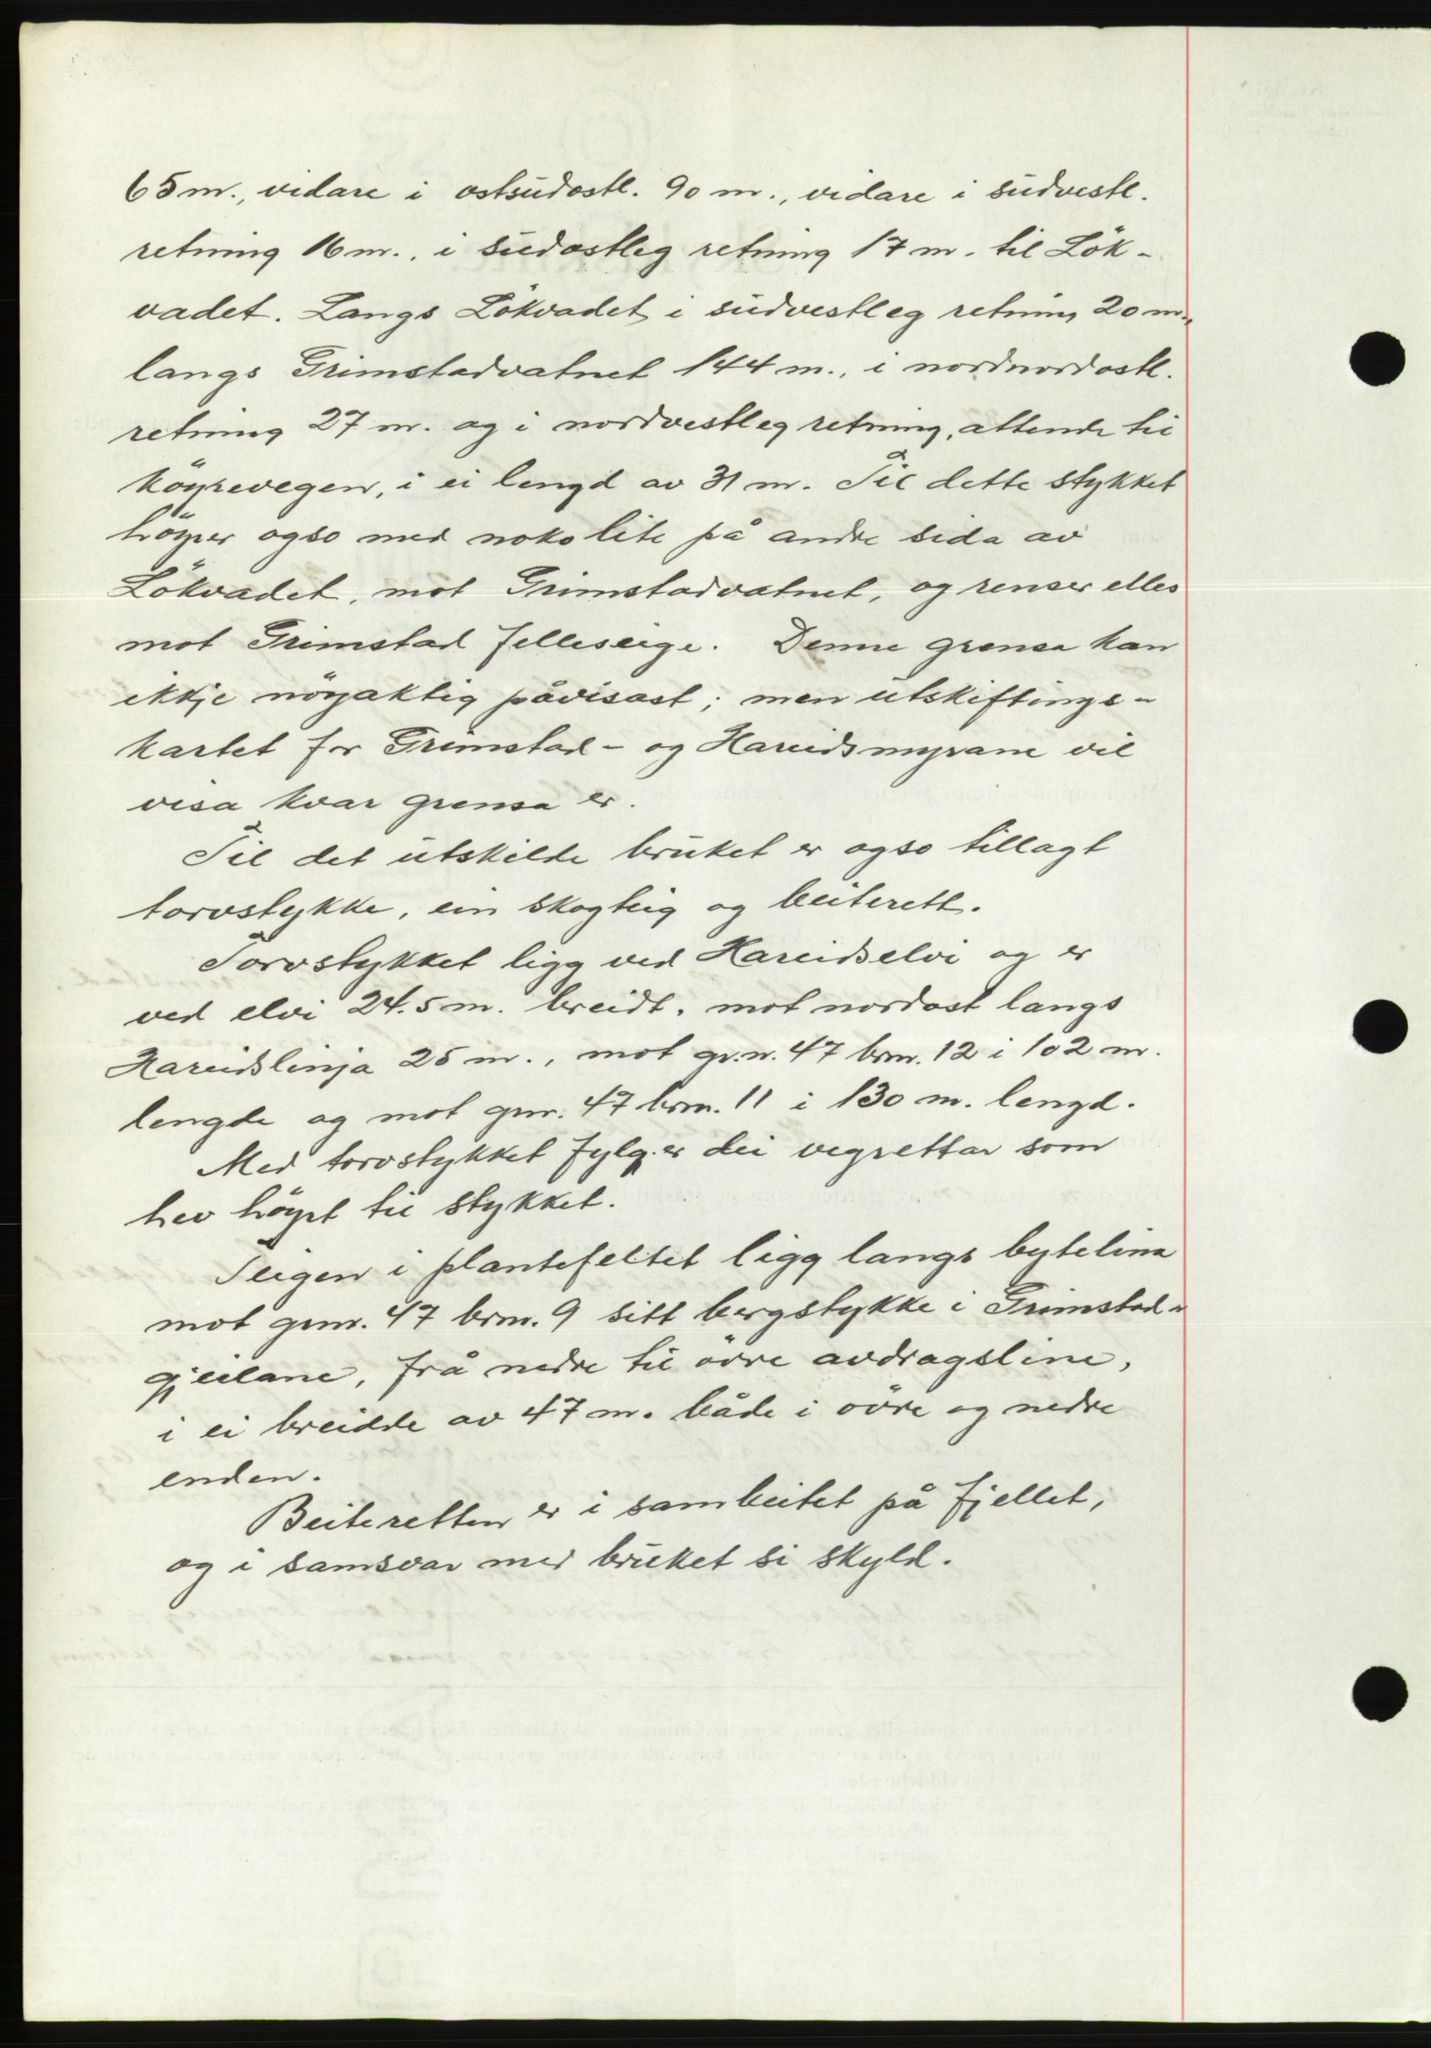 65 m., vidare i ostsudostl. 90 m., vidare i sudvestl.
retning 16 m., i sudostleg retning 17 m. til Lök-
vadet. Langs Lökvadet i sudvestleg retning 20 m.,
langs Grimstadvatnet 144 m., i nordnordostl.
retning 27 m. og i nordvestleg retning, attende til
köyrevegen, i ei lengd av 31 m. Til dette stykket
höyrer ogso med noko lite på andre sida av
Lökvadet, mot Grimstadvatnet, og renser elles
mot Grimstad felleseige. Denne grensa kan
ikkje nöyaktig påvisast; men utskiftings-
kartet for Grimstad- og Hareidsmyrane vil
visa kvar grensa er.
Til det utskilde bruket er ogso tillagt
torvstykke, ein skogteig og beiterett.
Torvstykket ligg ved Hareidselvi og er
ved elvi 24.5 m. breidt, mot nordost langs
Hareidslinja 25 m., mot gr.n. 47 brn. 12 i 102 m.
lengde og mot gnr. 47 brn. 11 i 130 m. lengd.
Med torvstykket fylgjer dei vegrettar som
hev höyrt til stykket.
Teigen i plantefeltet ligg langs bytelina
mot gnr. 47 brn. 9 sitt bergstykke i Grimstad-
gjeilane, frå nedre til övre avdragsline,
i ei breidde av 47 m. både i övre og nedre
enden.
Beiteretten er i sambeitet på fjellet,
og i samsvar med bruket si skyld.